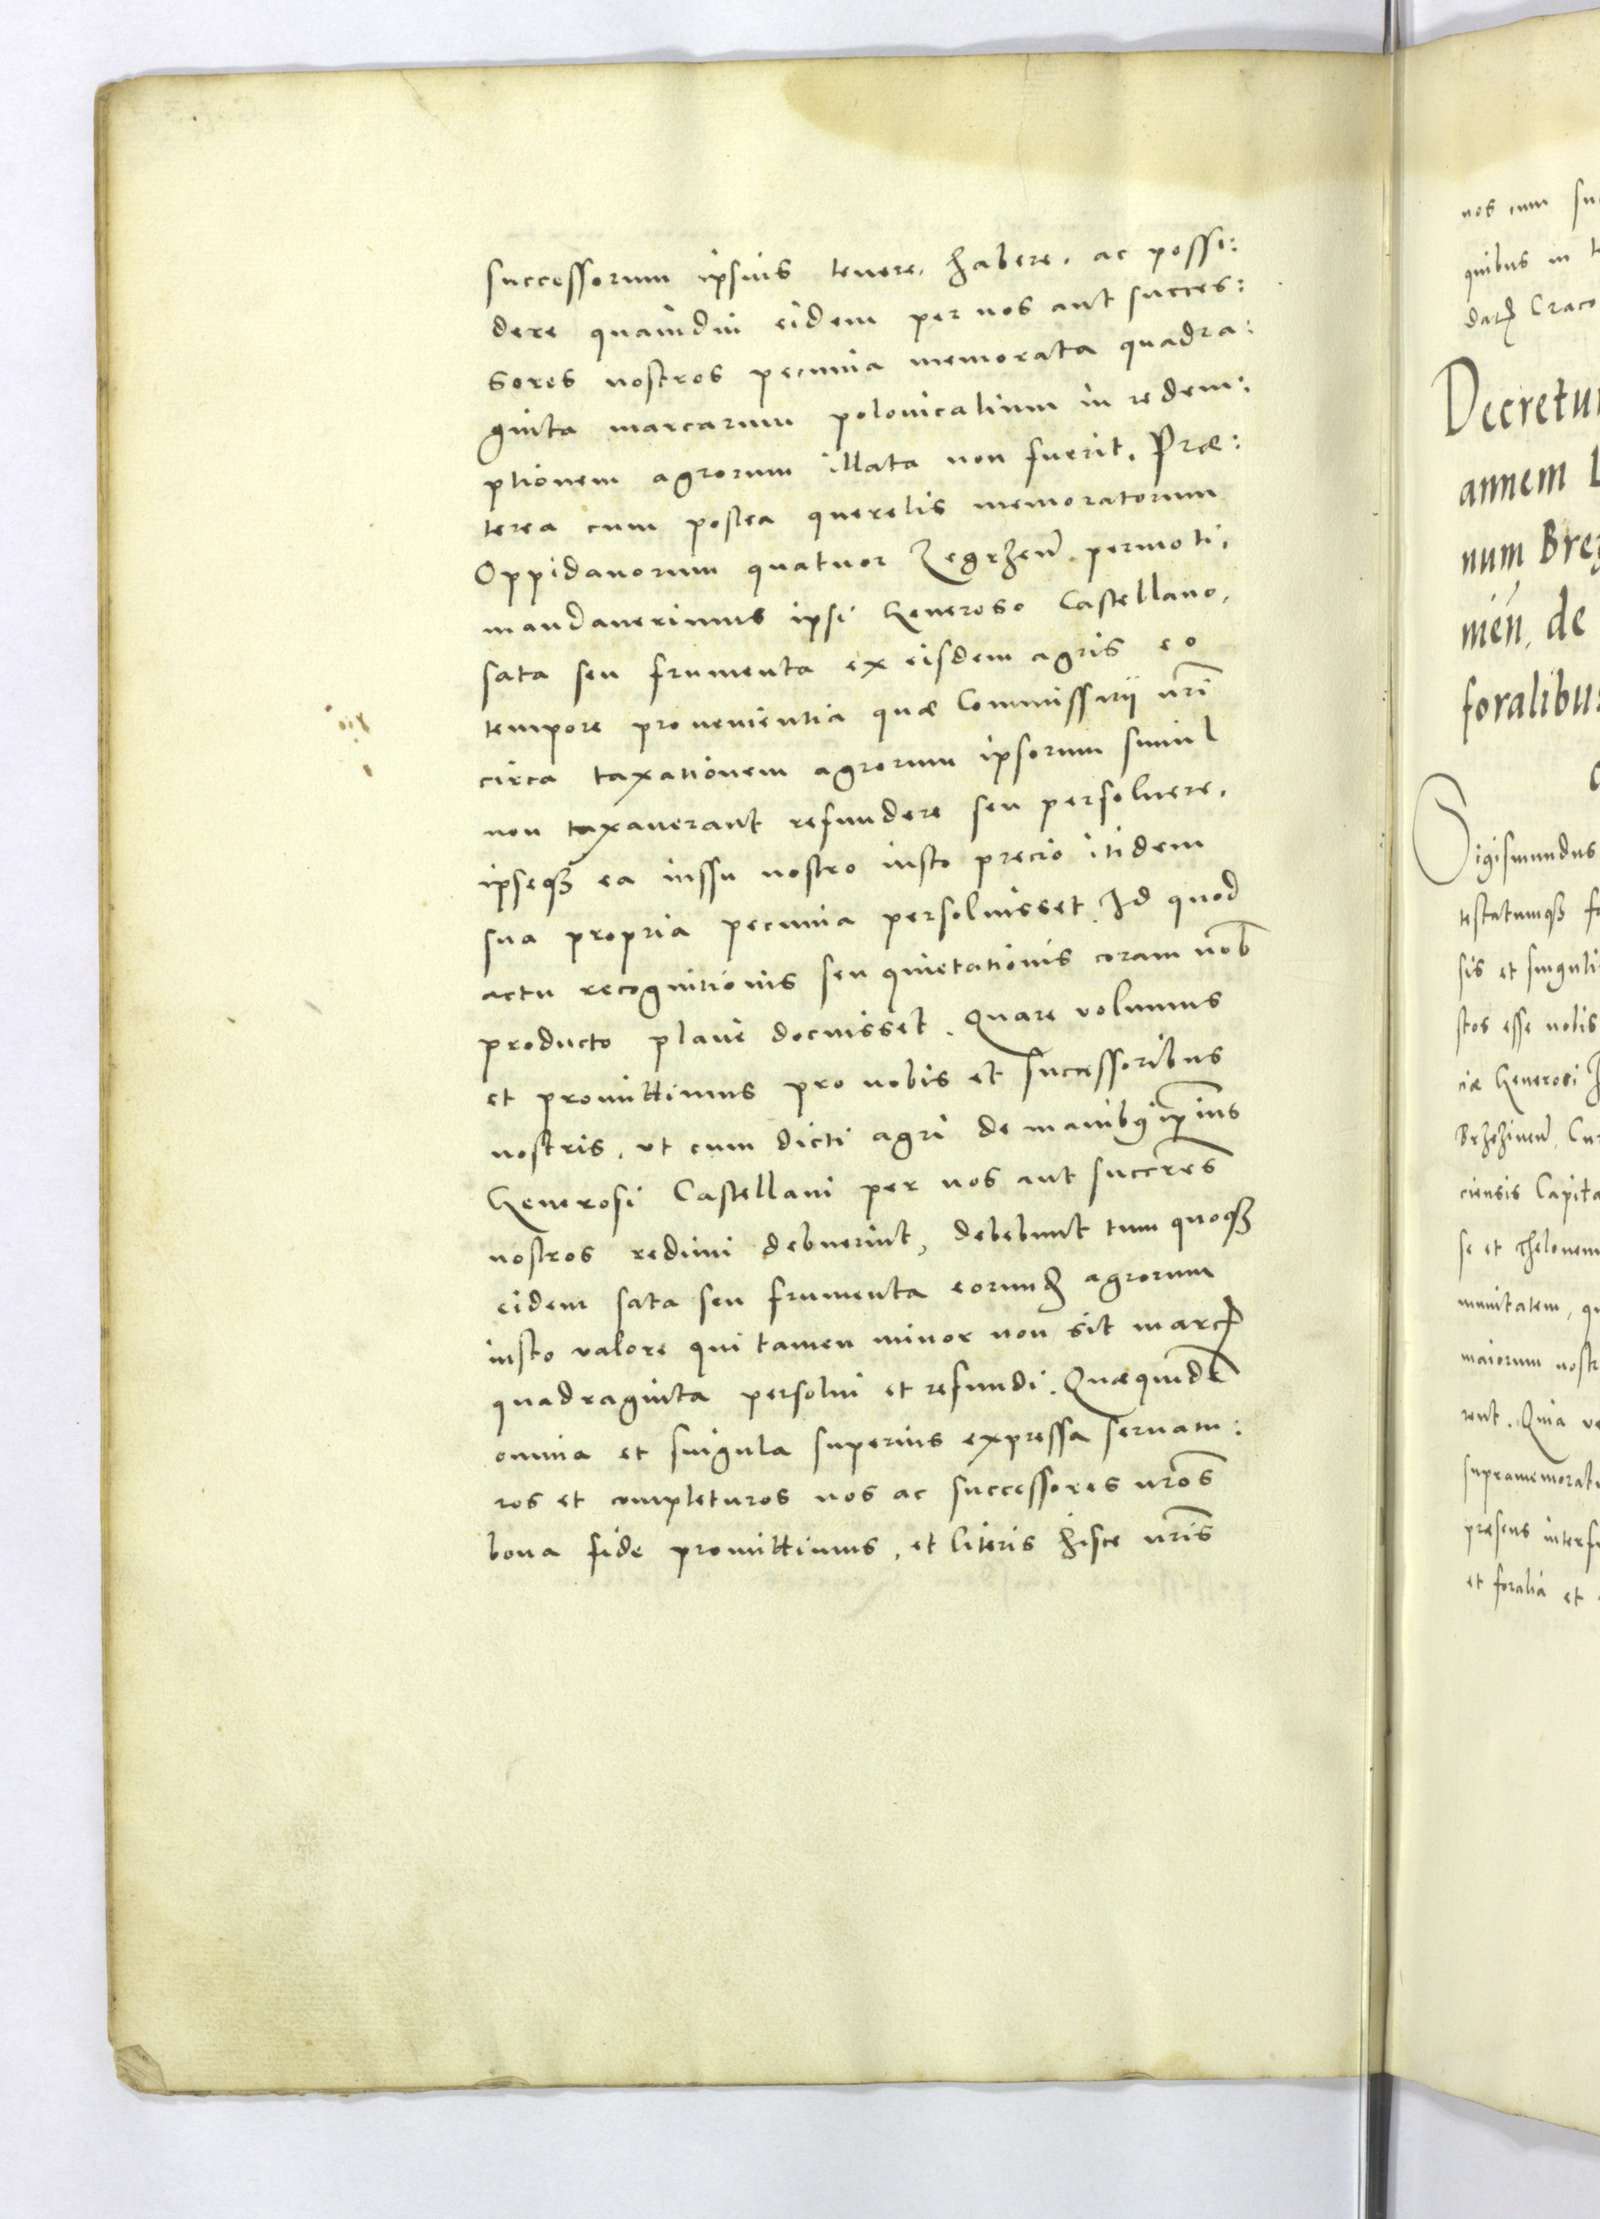 successorum ipsius tenere, habere, ac possi:
dere quamdiu eidem per nos aut succes:
sores nostros pecunia memorata quadra:
ginta marcarum polonicalium in redem:
ptionem agrorum illata non fuerit. Præ:
terea cum postea querelis memoratorum
Oppidanorum quatuor Zegrzeñ permoti,
mandauerimus ipsi Generoso Castellano,
sata seu frumenta ex eisdem agris eo
tempore prouenientia quæ Commissarii nr̃i
circa taxationem agrorum ipsorum simul
non taxauerant refundere seu persoluere,
ipseqꝫ ea iussu nostro iusto precio itidem
sua propria pecunia persoluisset. Id quod
actu recognitionis seu quietationis coram nob̃
producto plane docuisset. Quare volumus
et promittimus pro nobis et successoribus
nostris, vt cum dicti agri de manibꝰ ip̃ius
Generosi Castellani per nos aut succres̃
nostros redimi debuerint, debebunt tum quoqꝫ
eidem sata seu frumenta eorundꝫ agrorum
iusto valore qui tamen minor non sit marcꝝ
quadraginta persolui et refundi. Quæquidẽ
omnia et singula superius expressa seruatu:
ros et completuros nos ac successores nr̃os
bona fide promittimus, et literis hisce nr̃is
nos cum
quibus in
Craco
annem
num
de
foralibus
Sigismundus
testatumqꝫ
sis et
stos esse nobis
ciæ Generosi
Brzezineñ
ciensis
se et Thelonem
munitatem,
maiorum
rent. Quia
præsens
et foralia et